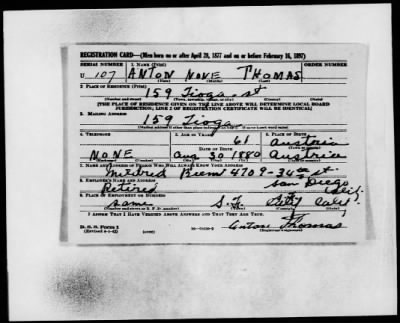 REGISTRATION CARD—(Men born on or after April 28, 1877 and on or before February 16, 1897)
SERIAL NUMBER 1. NAME (Print) ORDER NUMBER
U 107 ANTON NONE THOMAS
2. PLACE OF RESIDENCE (Print)
159 Tioga st
[THE PLACE OF RESIDENCE GIVEN ON THE LINE ABOVE WILL DETERMINE LOCAL BOARD
JURISDICTION; LINE 2 OF REGISTRATION CERTIFICATE WILL BE IDENTICAL]
3. MAILING ADDRESS
159 Tioga
[Mailing address if other than place indicated on line 2. If same insert word same]
4. TELEPHONE 5. AGE IN YEARS 6. PLACE OF BIRTH
61 Austria
DATE OF BIRTH
NONE Aug 30 1880 Austria
7. NAME AND ADDRESS OF PERSON WHO WILL ALWAYS KNOW YOUR ADDRESS
Mildred 4709-34th st
8. EMPLOYER'S NAME AND ADDRESS San Diego
Retired Calif.
9. PLACE OF EMPLOYMENT OR BUSINESS
Same S.F. Calif.
I AFFIRM THAT I HAVE VERIFIED ABOVE ANSWERS AND THAT THEY ARE TRUE.
D. S. S. Form 1
(Revised 4-1-42) (over) Anton Thomas
(Registrant's signature)